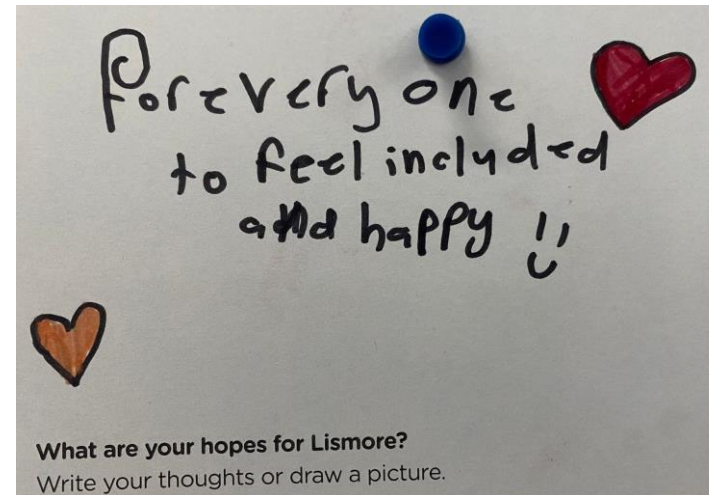 For every one
to feel included
and happy !!
What are your hopes for Lismore?
Write your thoughts or draw a picture.